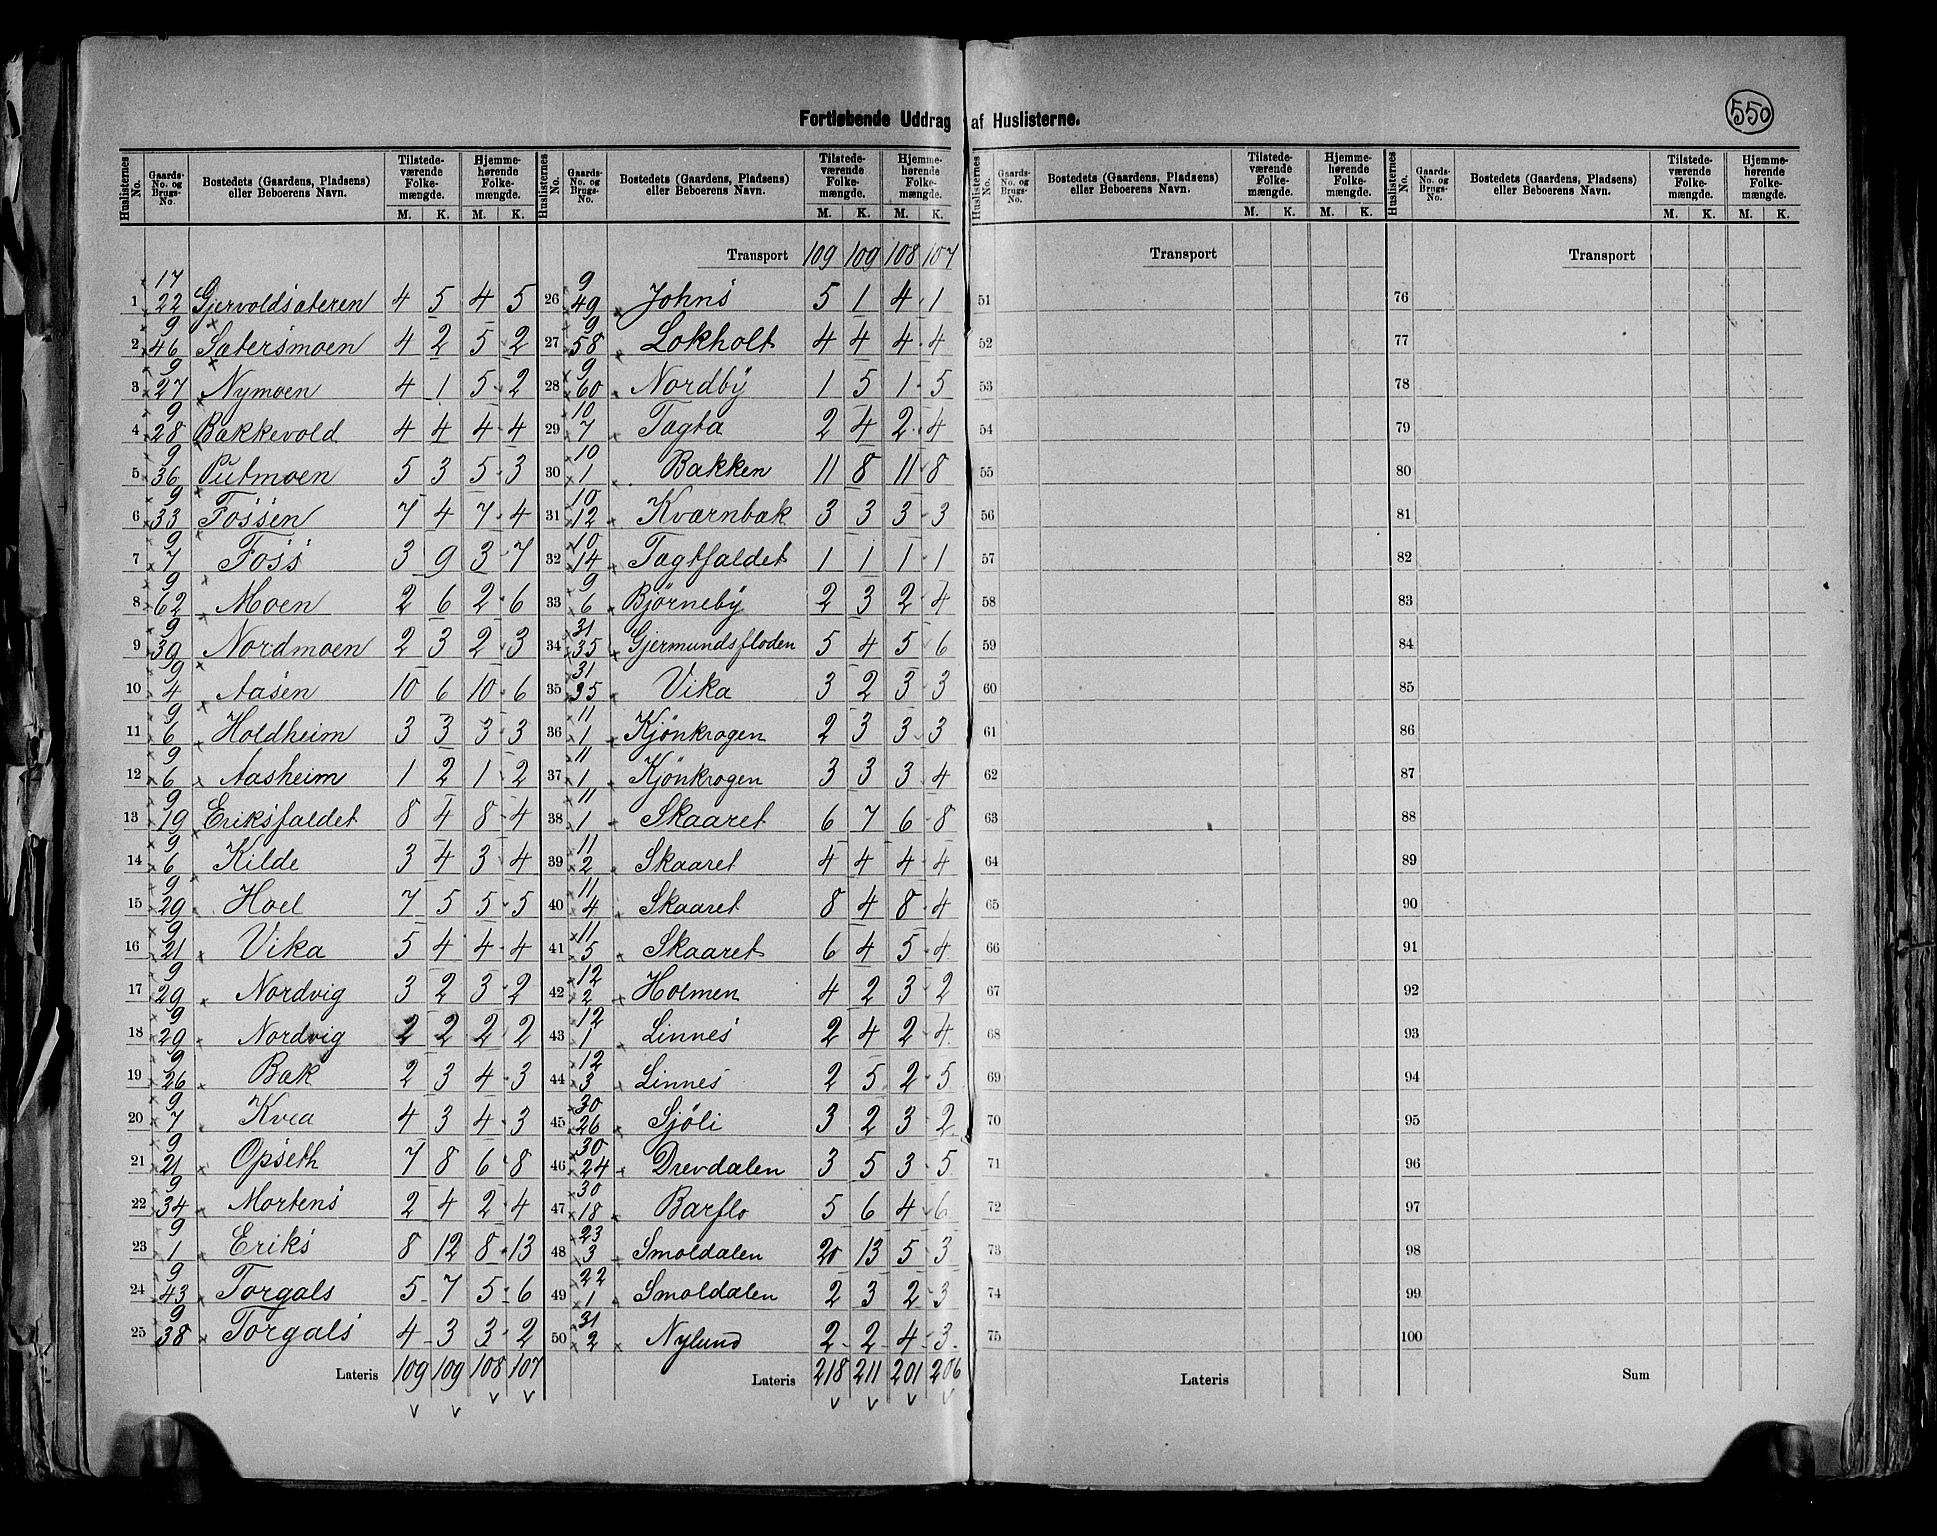 550
Fortløbende Uddrag af Huslisterne.
Huslisternes No. Gaards-No. og Brugs-No. Bostedets (Gaardens, Pladsens) eller Beboerens Navn. Tilstedeværende Folkemængde. M. K. Hjemmehørende Folkemængde. M. K.
Huslisternes No. Gaards-No. og Brugs-No. Bostedets (Gaardens, Pladsens) eller Beboerens Navn. Tilstedeværende Folkemængde. M. K. Hjemmehørende Folkemængde. M. K.
Huslisternes No. Gaards-No. og Brugs-No. Bostedets (Gaardens, Pladsens) eller Beboerens Navn. Tilstedeværende Folkemængde. M. K. Hjemmehørende Folkemængde. M. K.
Huslisternes No. Gaards-No. og Brugs-No. Bostedets (Gaardens, Pladsens) eller Beboerens Navn. Tilstedeværende Folkemængde. M. K. Hjemmehørende Folkemængde. M. K.
1 17/22 Gjervoldsæteren 4 5 4 5
2 9/46 Sætersmoen 4 2 5 2
3 9/27 Nymoen 4 1 5 2
4 9/28 Bakkevold 4 4 4 4
5 9/36 Putmoen 5 3 5 3
6 9/33 Fossen 7 4 7 4
7 9/7 Foss 3 9 3 7
8 9/62 Moen 2 6 2 6
9 9/39 Nordmoen 2 3 2 3
10 9/4 Aasen 10 6 10 6
11 9/6 Holdheim 3 3 3 3
12 9/6 Aasheim 1 2 1 2
13 9/19 Eriksfaldet 8 4 8 4
14 9/6 Kilde 3 4 3 4
15 9/29 Hoel 7 5 5 5
16 9/21 Vika 5 4 4 4
17 9/29 Nordvig 3 2 3 2
18 9/29 Nordvig 2 2 2 2
19 9/26 Bak 2 3 4 3
20 9/7 Kvea 4 3 4 3
21 9/21 Opseth 7 8 6 8
22 9/34 Mortens 2 4 2 4
23 9/1 Eriks 8 12 8 13
24 9/43 Torgals 5 7 5 6
25 9/38 Torgals 4 3 3 2
Lateris 109 109 108 107
Transport 109 109 108 107
26 9/49 Johns 5 1 4 1
27 9/58 Lokholt 4 4 4 4
28 9/60 Nordby 1 5 1 5
29 10/7 Tagta 2 4 2 4
30 10/1 Bakken 11 8 11 8
31 10/12 Kværnbæk 3 3 3 3
32 10/14 Tagtfaldet 1 1 1 1
33 9/6 Bjørneby 2 3 2 4
34 31/35 Gjermundsfloden 5 4 5 6
35 31/35 Vika 3 2 3 3
36 11/1 Kjönkrogen 2 3 3 3
37 11/1 Kjönkrogen 3 3 3 4
38 11/1 Skaaret 6 7 6 8
39 11/2 Skaaret 4 4 4 4
40 11/4 Skaaret 8 4 8 4
41 11/5 Skaaret 6 4 5 4
42 12/2 Holmen 4 2 3 2
43 12/1 Linnes 2 4 2 4
44 12/3 Linnes 2 5 2 5
45 30/26 Sjöli 3 2 3 2
46 30/24 Drevdalen 3 5 3 5
47 30/18 Barflo 5 6 4 6
48 23/3 Smoldalen 20 13 5 3
49 22/1 Smoldalen 2 3 2 3
50 31/2 Nylund 2 2 4 3
Lateris 218 211 201 206
Transport
51
52
53
54
55
56
57
58
59
60
61
62
63
64
65
66
67
68
69
70
71
72
73
74
75
Lateris
Transport
76
77
78
79
80
81
82
83
84
85
86
87
88
89
90
91
92
93
94
95
96
97
98
99
100
Sum